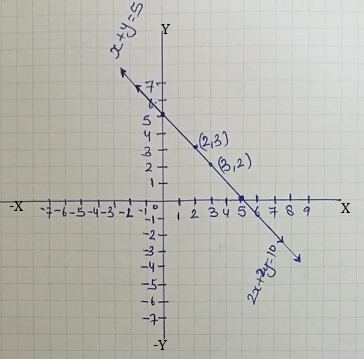 x+y=5
Y
7
6
5
4
3
2
1
(2,3)
(3,2)
-X
-7 -6 -5 -4 -3 -2 -1 0 1 2 3 4 5 6 7 8 9
X
-1
-2
-3
-4
-5
-6
-7
2x+2y=10
-Y